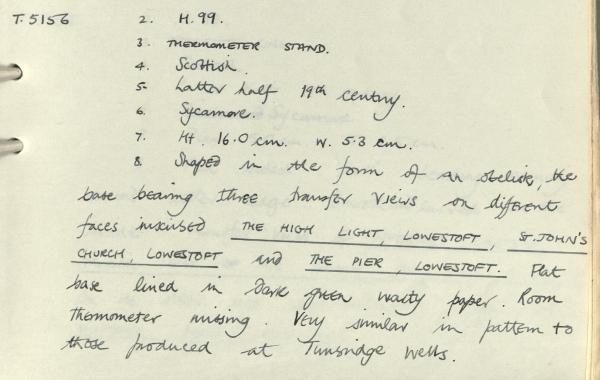 T.5156 2. H.99.
3. THERMOMETER STAND.
4. Scottish.
5. Latter half 19th century.
6. Sycamore.
7. Ht. 16.0 cm. W. 5.3 cm.
8. Shaped in the form of an obelisk, the
base bearing three transfer views on different
faces inscribed THE HIGH LIGHT, LOWESTOFT, ST. JOHN'S
CHURCH, LOWESTOFT and THE PIER, LOWESTOFT. Flat
base lined in dark green waxy paper. Room
thermometer missing. Very similar in pattern to
those produced at Tunbridge Wells.